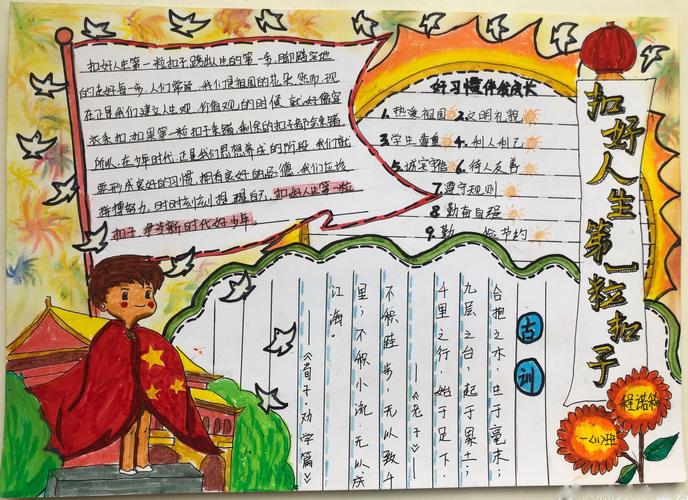 扣好人生第一粒扣子
扣好人生第一粒扣子踏出人生的第一步,脚踏实地
的走好每一步,人们常说,我们是祖国的花朵,然而,现
在正是我们建立人生观,价值观的时候,就好像穿
衣系扣,如果第一粒扣子系错,剩余的扣子都会系错
所以,在少年时代,正是我们思想养成的阶段,我们就
要形成良好的习惯,拥有良好的品德,我们应该
拼搏努力,时时刻刻提醒自己,扣好人生第一粒
扣子,争当新时代好少年.
好习惯伴我成长
1.热爱祖国 2.文明礼貌
3.学生尊重 4.利人利己
5.诚实守信 6.待人友善
7.遵守规则
8.勤奋自强
9.勤 节约
古训
合抱之木,生于毫末;
九层之台,起于累土;
千里之行,始于足下.
——《老子》——
不积跬步,无以致千
里;不积小流,无以成
江海.
——《荀子·劝学篇》
程诺
一<11>班